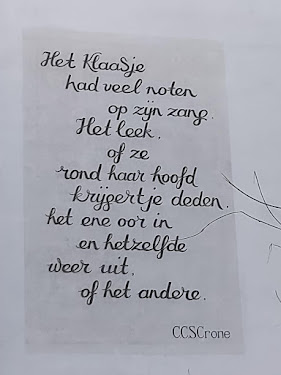 Het KlaaSje
had veel noten
op zijn zang.
Het leek.
of ze
rond haar hoofd
krijgertje deden.
het ene oor in
en hetzelfde
weer uit.
of het andere.
CCSCrone